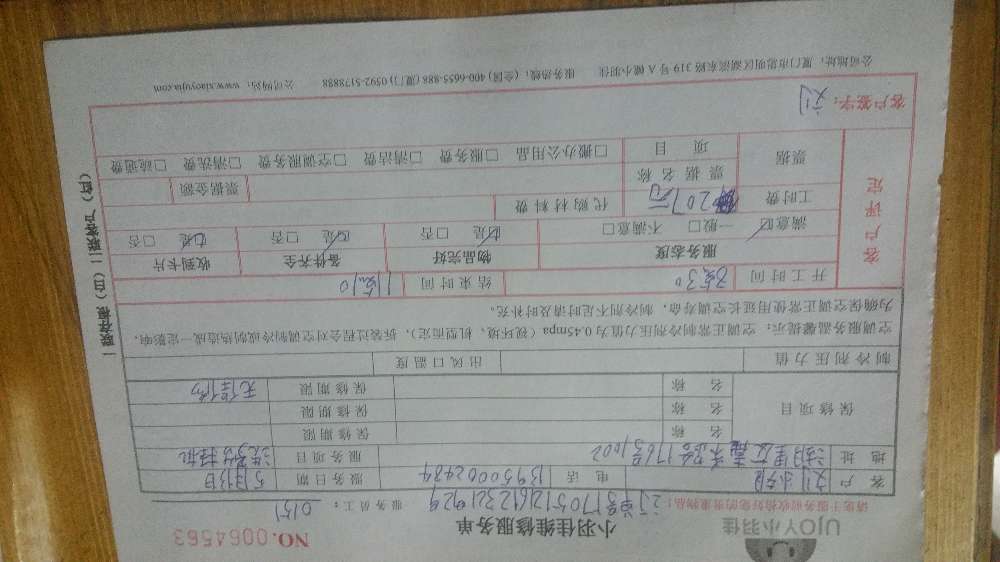 UJOY小羽佳
小羽佳维修服务单
NO.0064563
请您于服务前收拾好您的贵重物品!
订单号170512612321929
服务员工: 0151
客户 电话 13950002484 服务日期 5月13日
地址 湖里区嘉禾路176号1002 服务项目
保修项目
名称 保修期限
名称 保修期限
名称 保修期限 无保修
制冷剂压力值 出风口温度
空调服务温馨提示:空调正常制冷剂压力值为0.45mpa(视环境、机型而定),拆装过程会对空调制冷或制热造成一定影响,
为确保空调正常使用延长空调寿命,制冷剂不足时请及时补充。
客户评定
开工时间 结束时间 11点10
服务态度 物品完好 备件齐全 收到卡片
满意☑ 一般☐ 不满意☐ ☑是 ☐否 ☑是 ☐否 ☑是 ☐否
工时费 207元 代购材料费
票据 票据名称 票据金额
项目 ☐搬办公用品 ☐服务费 ☐清洁费 ☐空调服务费 ☐清洗费 ☐疏通费
客户签字: 刘
公司地址:厦门市思明区湖滨东路319号A幢小羽佳 服务热线:(全国)400-6655-888 (厦门)0592-5178888 公司网站:www.xiaoyujia.com
一联存根(白) 二联客户(红)